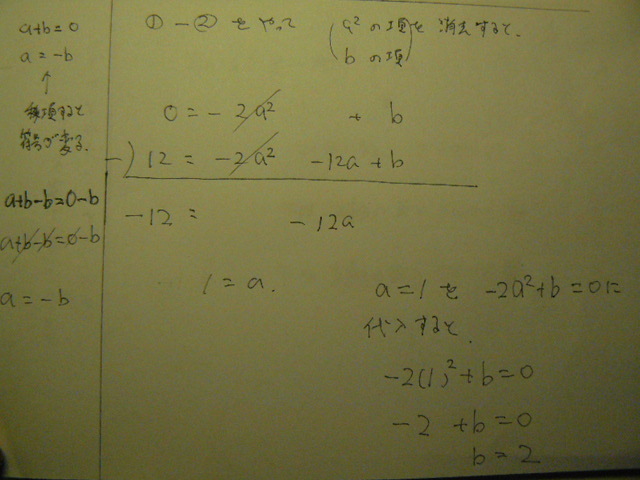 a+b=0
a=-b
↑
移項すると
符号が変る.
a+b-b=0-b
a+b-b=0-b
a=-b
①-②をやって (a²の項 b の項)を 消去すると、
0=-2a² + b
-) 12=-2a² -12a+b
-12= -12a
1=a.
a=1を -2a²+b=0に
代入すると、
-2(1)²+b=0
-2 +b=0
b=2